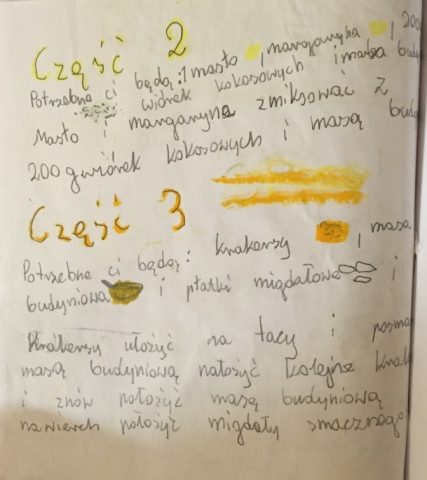 Część 2
Potrzebne ci będą: 1 masło , margaryna , 200
wiórek kokosowych i masa budyn
Masło i margarynę zmiksować z
200 g wiórek kokosowych i masą budy
Część 3
Potrzebne ci będą: krakersy , masa
budyniowa i płatki migdałowe i
Krakersy ułożyć na tacy i posma
masą budyniową nałożyć kolejne krake
i znów położyć masę budyniową
na wierch położyć migdały smacznego